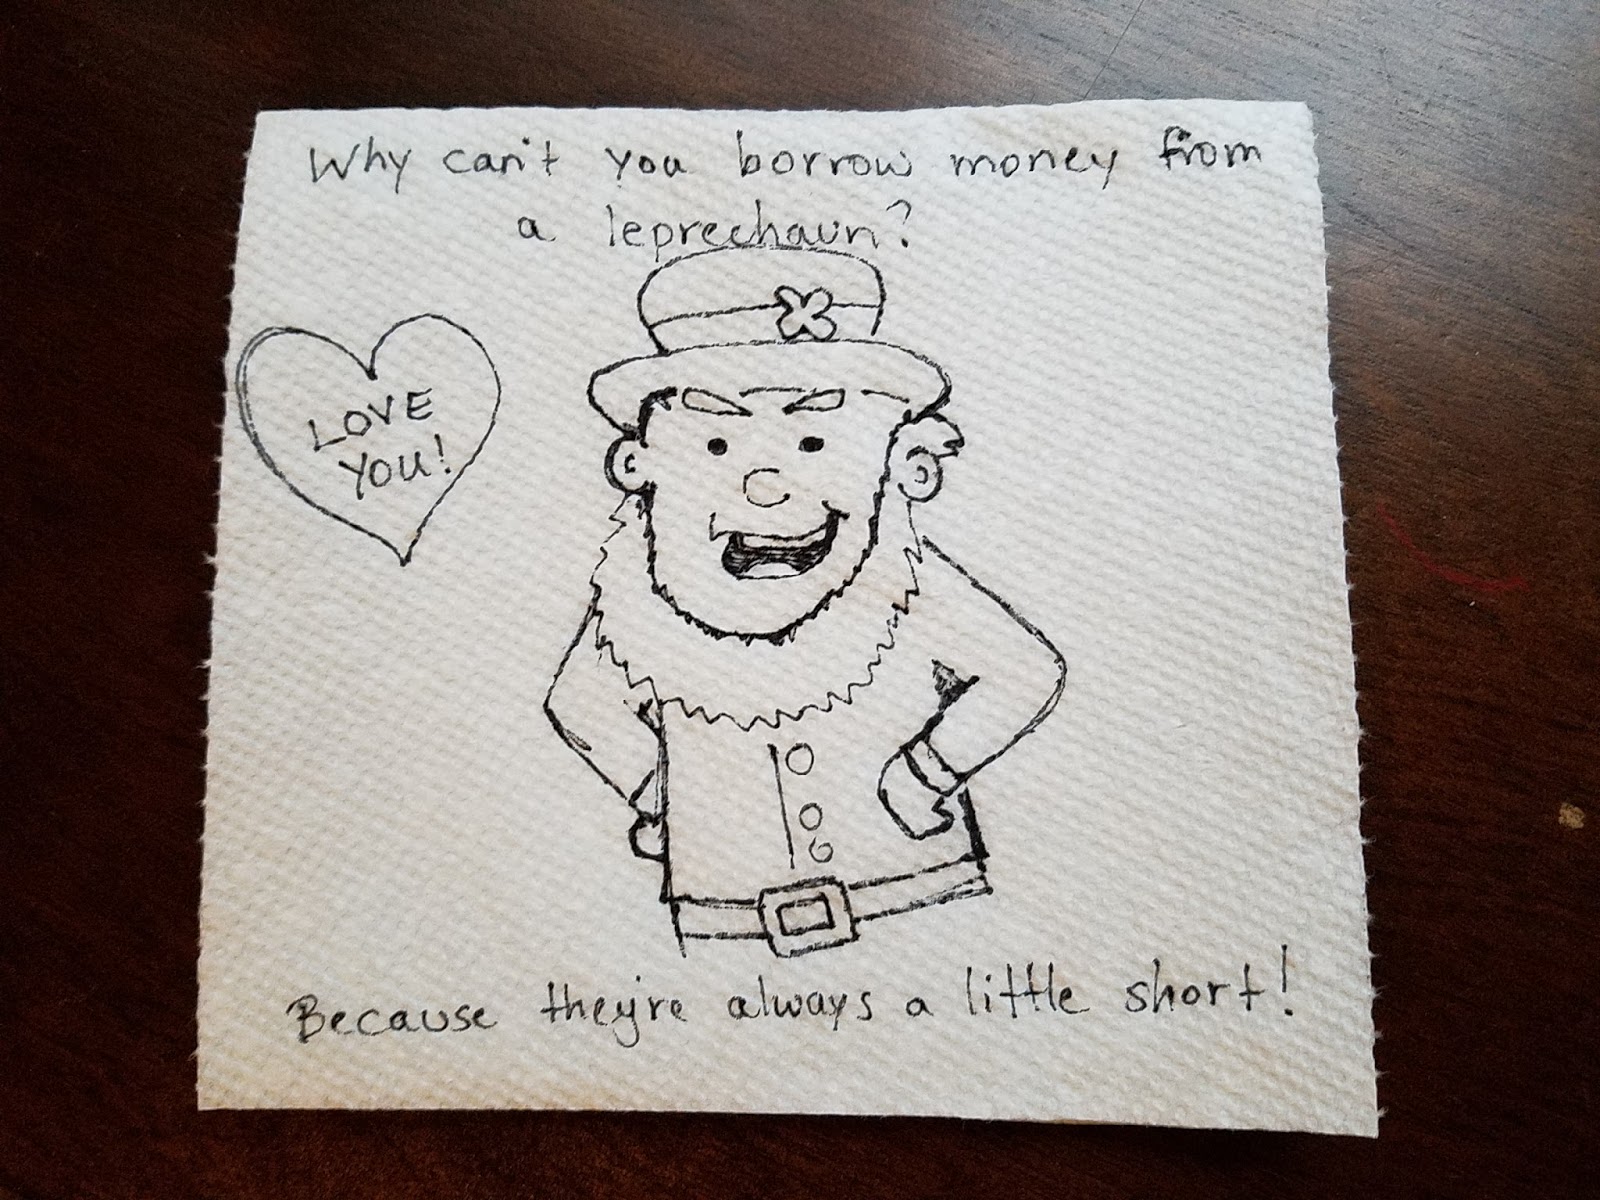 Why can't you borrow money from
a leprechaun?
LOVE
YOU!
Because they're always a little short!